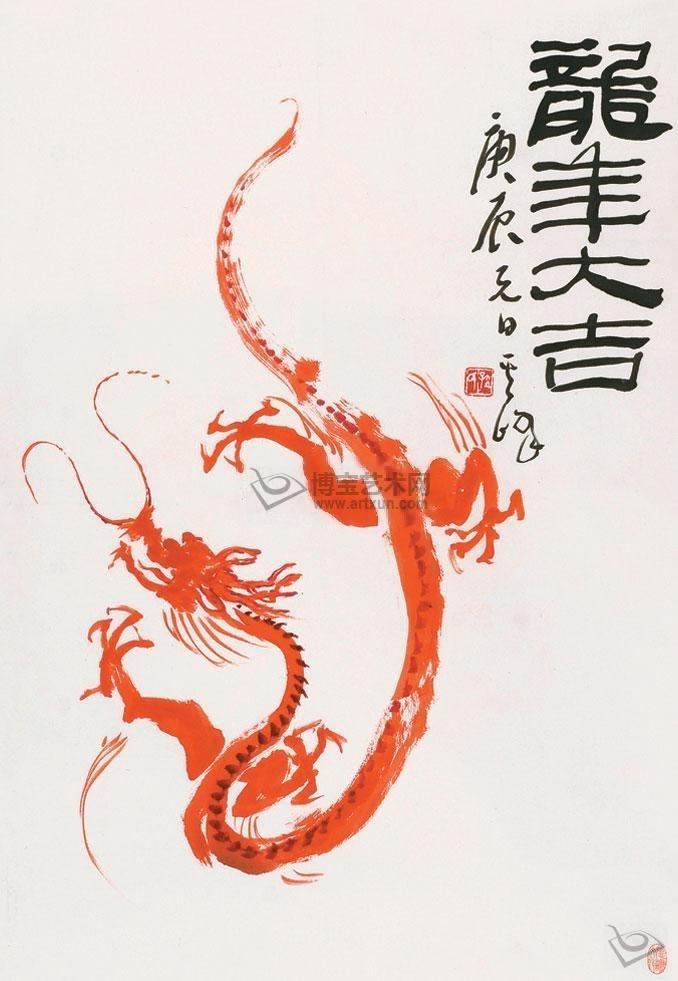 龍年大吉
庚辰元日云峰
博宝艺术网
www.artxun.com